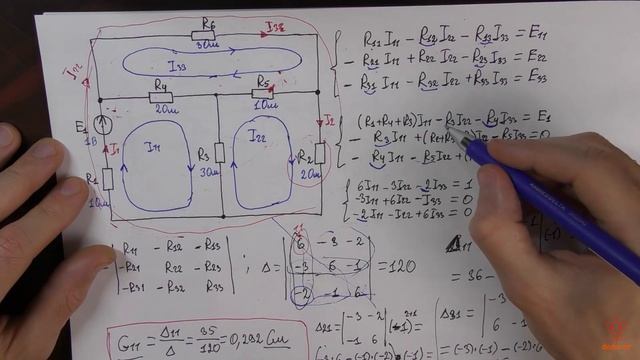 R6
3Ом
I3B
I33
I22
R4
2Ом
R5
1Ом
E1
1В
I1
I11
R3
3Ом
I22
I2
R2
2Ом
R1
1Ом
R11 I11 - R12 I22 - R13 I33 = E11
- R21 I11 + R22 I22 - R23 I33 = E22
- R31 I11 - R32 I22 + R33 I33 = E33
(R1+R4+R3)I11 - R3 I22 - R4 I33 = E1
- R3 I11 + I22 - R5 I33 = 0
- R4 I11 - R5 I22 +
6I11 - 3I22 - 2I33 = 1
-3I11 + 6I22 - I33 = 0
-2I11 - I22 + 6I33 = 0
R11 -R12 -R13
-R21 R22 -R23
-R31 -R32 R33
; Δ =
6 -3 -2
-3 6 -1
-2 -1 6
= 120
Δ11
= 36 -
G11 = Δ11/Δ = 35/120 = 0,292 См
Δ21 =
-3 -2
-1 6
(-1)²⁺¹ =
Δ31 =
-3
6
= (-3)·(-1) -